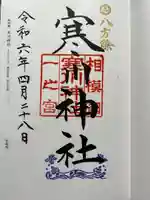 八方除
寒川神社
相模國
寒川神社
一之宮
令和六年四月二十八日